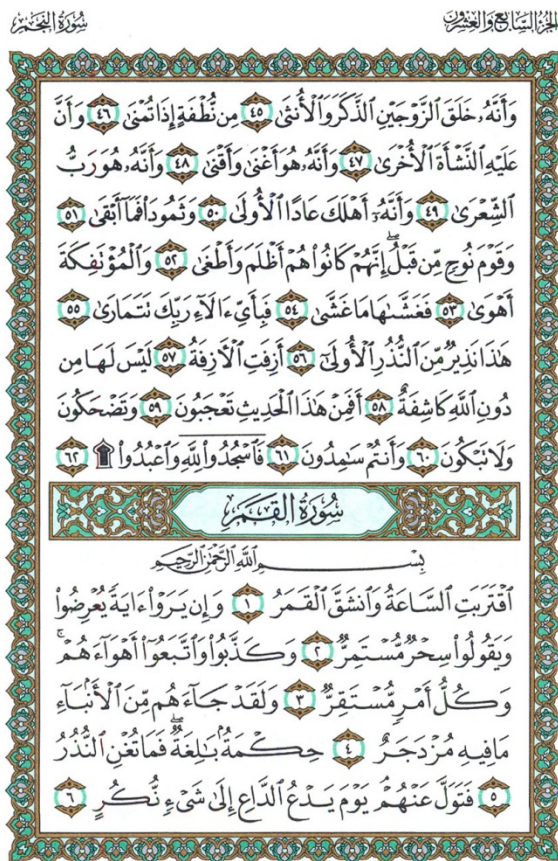 الجزء السابع والعشرون
سورة النجم
وَأَنَّهُۥ خَلَقَ ٱلزَّوْجَيْنِ ٱلذَّكَرَ وَٱلْأُنثَىٰ ٤٥ مِن نُّطْفَةٍ إِذَا تُمْنَىٰ ٤٦ وَأَنَّ
عَلَيْهِ ٱلنَّشْأَةَ ٱلْأُخْرَىٰ ٤٧ وَأَنَّهُۥ هُوَ أَغْنَىٰ وَأَقْنَىٰ ٤٨ وَأَنَّهُۥ هُوَ رَبُّ
ٱلشِّعْرَىٰ ٤٩ وَأَنَّهُۥٓ أَهْلَكَ عَادًا ٱلْأُولَىٰ ٥٠ وَثَمُودَا۟ فَمَآ أَبْقَىٰ ٥١
وَقَوْمَ نُوحٍ مِّن قَبْلُ ۖ إِنَّهُمْ كَانُوا۟ هُمْ أَظْلَمَ وَأَطْغَىٰ ٥٢ وَٱلْمُؤْتَفِكَةَ
أَهْوَىٰ ٥٣ فَغَشَّىٰهَا مَا غَشَّىٰ ٥٤ فَبِأَىِّ ءَالَآءِ رَبِّكَ تَتَمَارَىٰ ٥٥
هَٰذَا نَذِيرٌ مِّنَ ٱلنُّذُرِ ٱلْأُولَىٰٓ ٥٦ أَزِفَتِ ٱلْءَازِفَةُ ٥٧ لَيْسَ لَهَا مِن
دُونِ ٱللَّهِ كَاشِفَةٌ ٥٨ أَفَمِنْ هَٰذَا ٱلْحَدِيثِ تَعْجَبُونَ ٥٩ وَتَضْحَكُونَ
وَلَا تَبْكُونَ ٦٠ وَأَنتُمْ سَٰمِدُونَ ٦١ فَٱسْجُدُوا۟ لِلَّهِ وَٱعْبُدُوا۟ ۩ ٦٢
سورة القمر
بسم الله الرحمن الرحيم
ٱقْتَرَبَتِ ٱلسَّاعَةُ وَٱنشَقَّ ٱلْقَمَرُ ١ وَإِن يَرَوْا۟ ءَايَةً يُعْرِضُوا۟
وَيَقُولُوا۟ سِحْرٌ مُّسْتَمِرٌّ ٢ وَكَذَّبُوا۟ وَٱتَّبَعُوٓا۟ أَهْوَآءَهُمْ ۚ
وَكُلُّ أَمْرٍ مُّسْتَقِرٌّ ٣ وَلَقَدْ جَآءَهُم مِّنَ ٱلْأَنۢبَآءِ
مَا فِيهِ مُزْدَجَرٌ ٤ حِكْمَةٌۢ بَٰلِغَةٌ ۖ فَمَا تُغْنِ ٱلنُّذُرُ
٥ فَتَوَلَّ عَنْهُمْ ۘ يَوْمَ يَدْعُ ٱلدَّاعِ إِلَىٰ شَىْءٍ نُّكُرٍ ٦